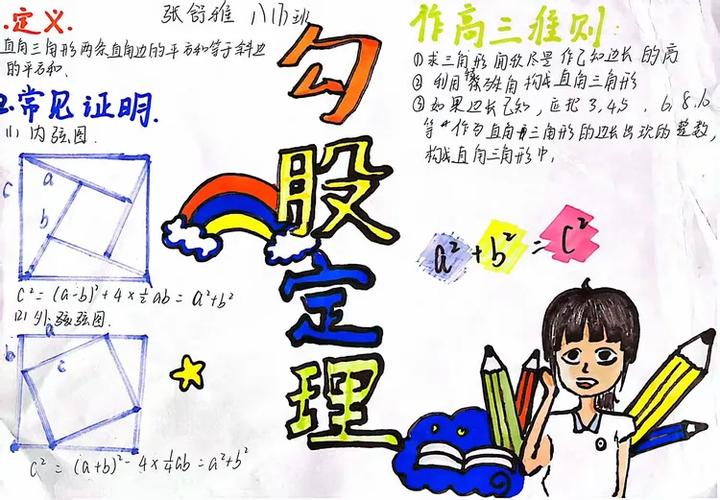 张舒雅 八(1)班
1.定义.
直角三角形两条直角边的平方和等于斜边
的平方和.
2.常见证明.
(1) 内弦图.
c
a
b
c² = (a-b)² + 4×½ab = a²+b²
(2) 外弦图.
a
b
c
c² = (a+b)² - 4×¼ab = a²+b²
勾
股
定
理
作高三准则:
① 求三角形面积尽量作已知边长的高
② 利用特殊角构成直角三角形
③ 如果边长已知, 应把 3,4,5 , 6,8,10
等"作为直角三角形的边长出现的整数,
构成直角三角形中.
a² + b² = c²